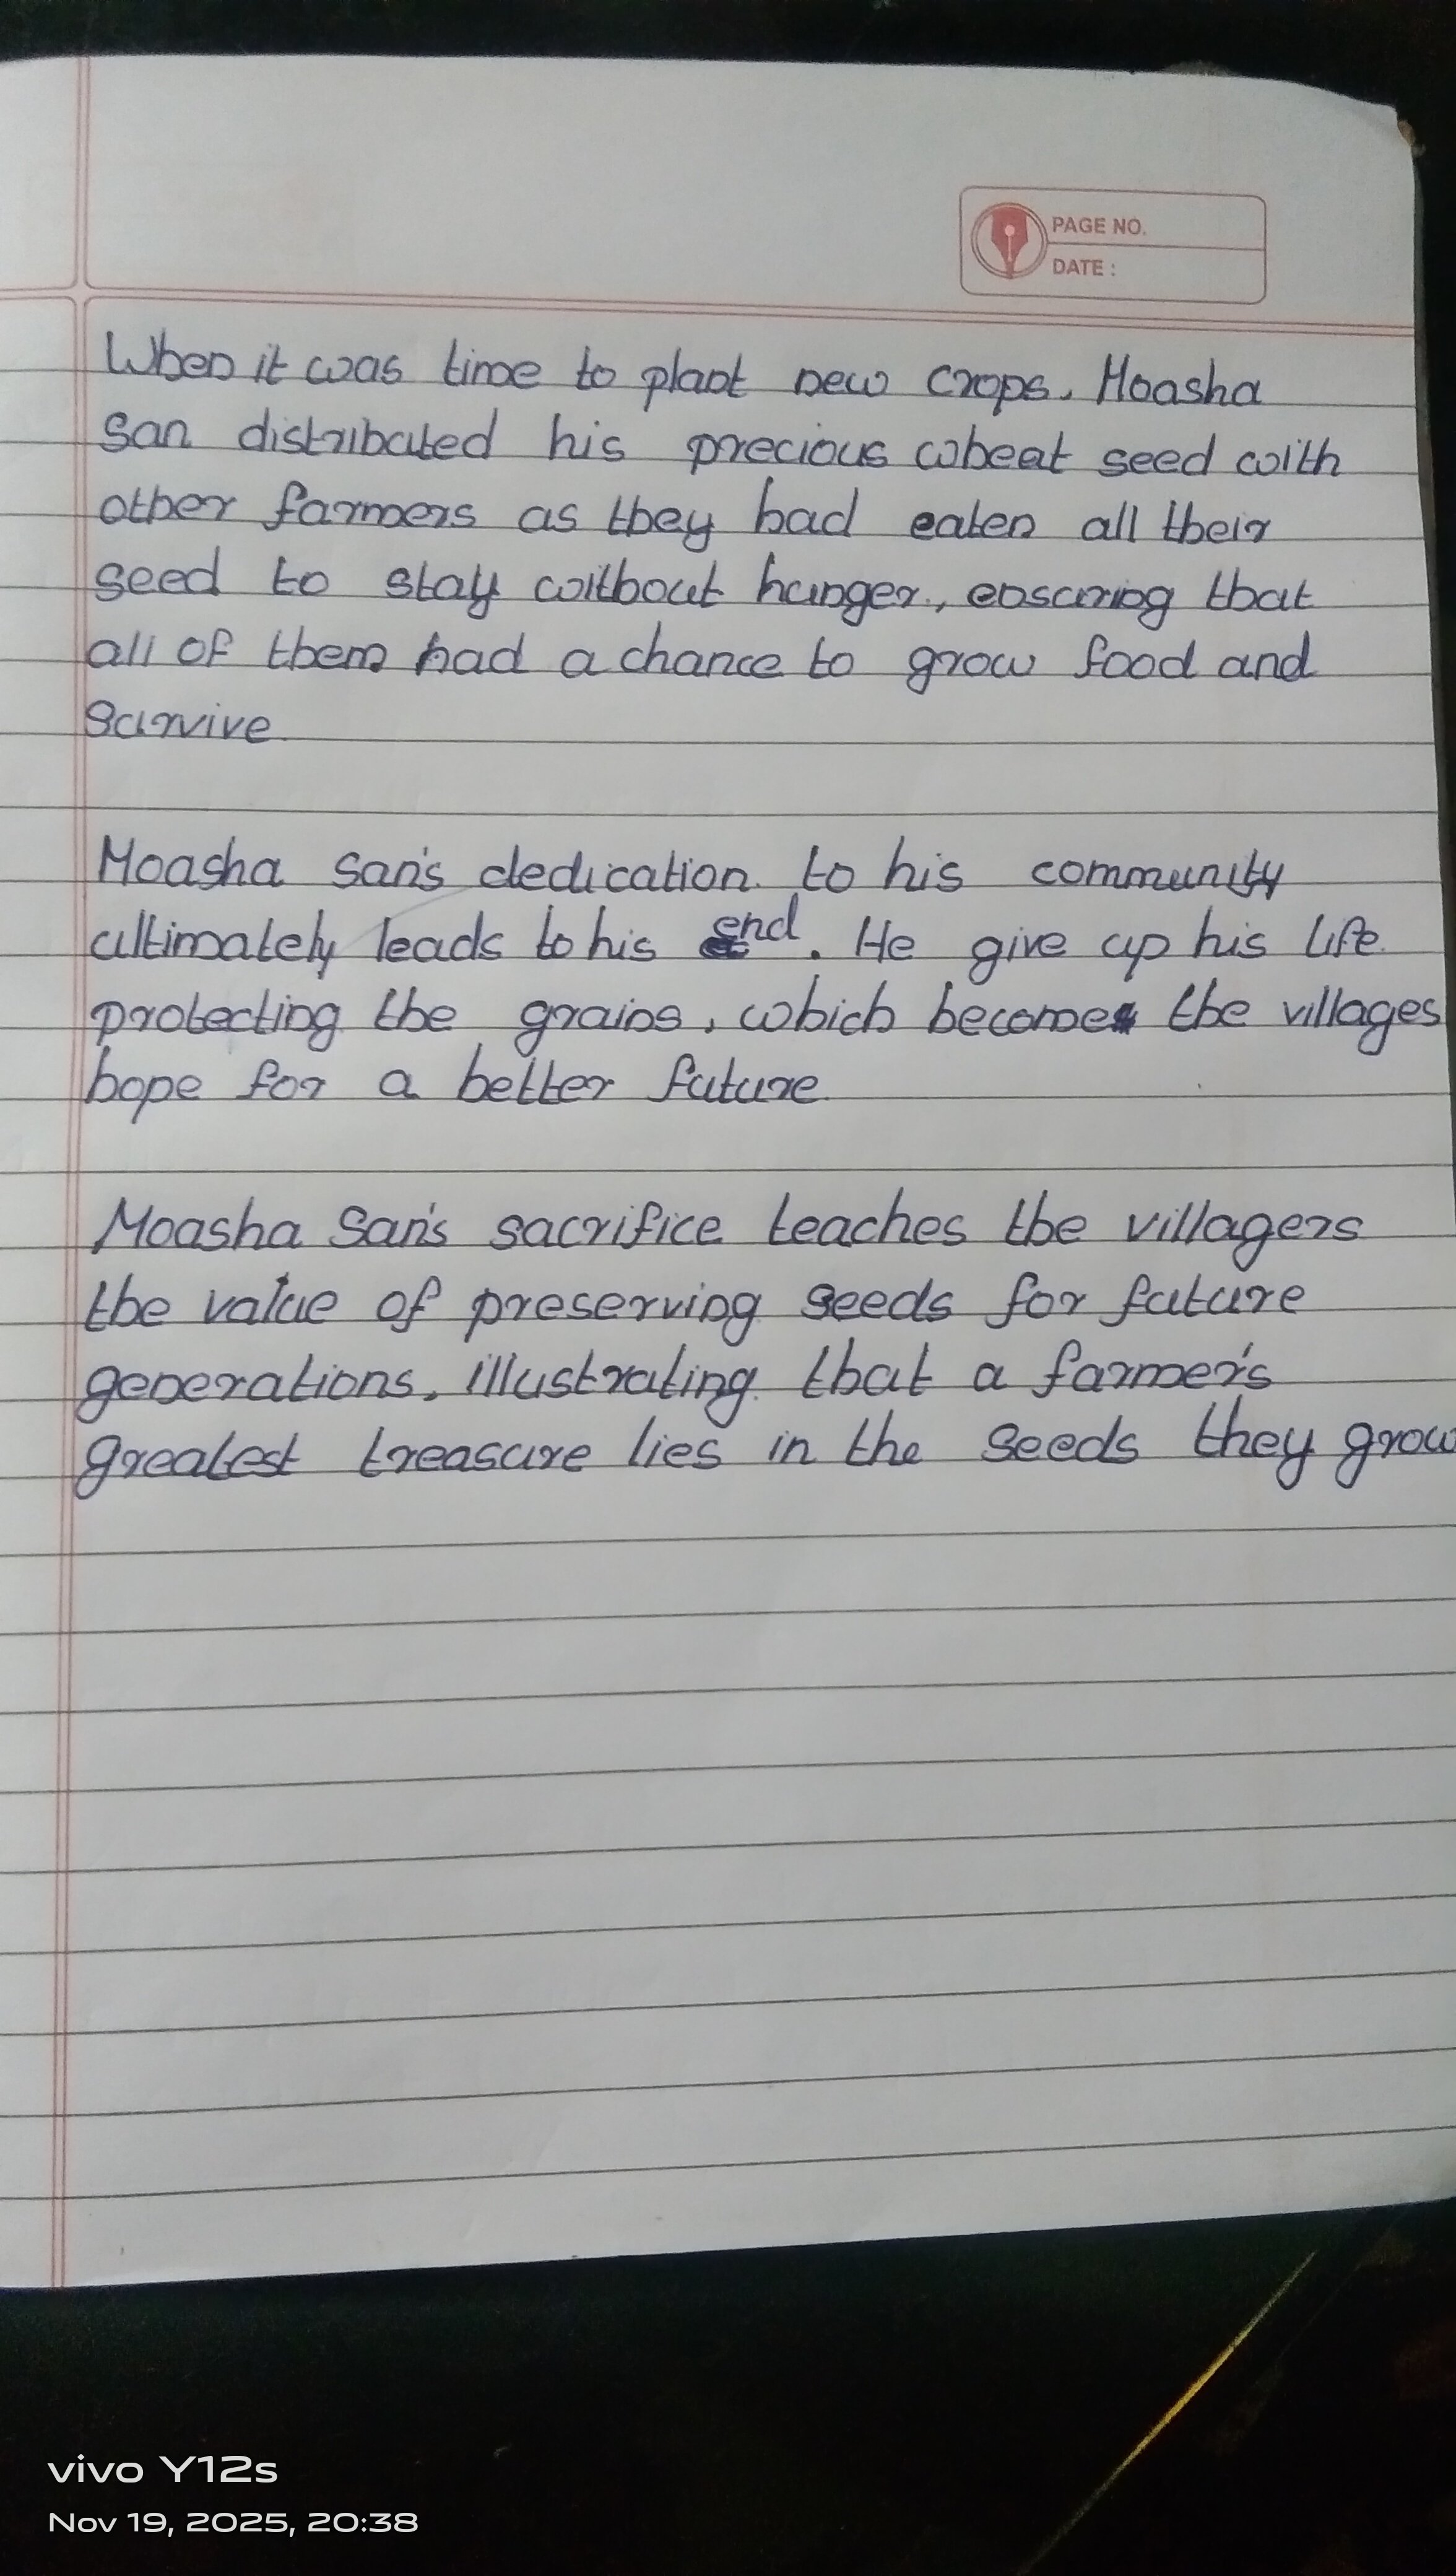 PAGE NO.
DATE :
When it was time to plant new crops, Moasha
San distributed his precious wheat seed with
other farmers as they had eaten all their
seed to stay without hunger, ensuring that
all of them had a chance to grow food and
survive
Moasha San's dedication to his community
ultimately leads to his end. He give up his life
protecting the grains, which becomes the villages
hope for a better future
Moasha San's sacrifice teaches the villagers
the value of preserving seeds for future
generations, illustrating that a farmer's
greatest treasure lies in the seeds they grow
vivo Y12s
Nov 19, 2025, 20:38